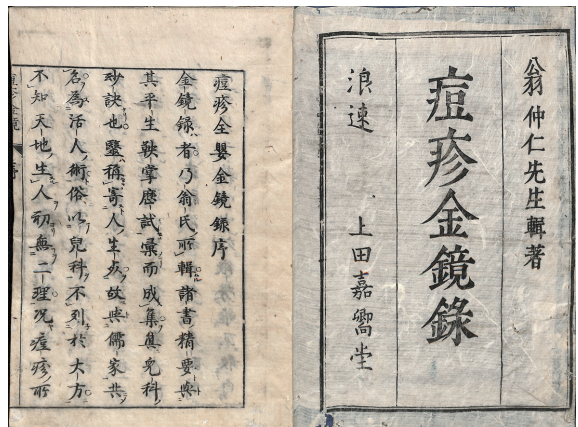 翁仲仁先生輯著
痘疹金鏡錄
浪速 上田嘉嚮堂
痘疹全嬰金鏡錄序
金鏡錄者乃翁氏所輯諸書精要與
其平生鞅掌應試彙而成集真兒科
玅訣也醫稱寄人生死故與儒家共
名為活人術俗以兒科不列於大方
不知天地生人初無二理況痘疹所